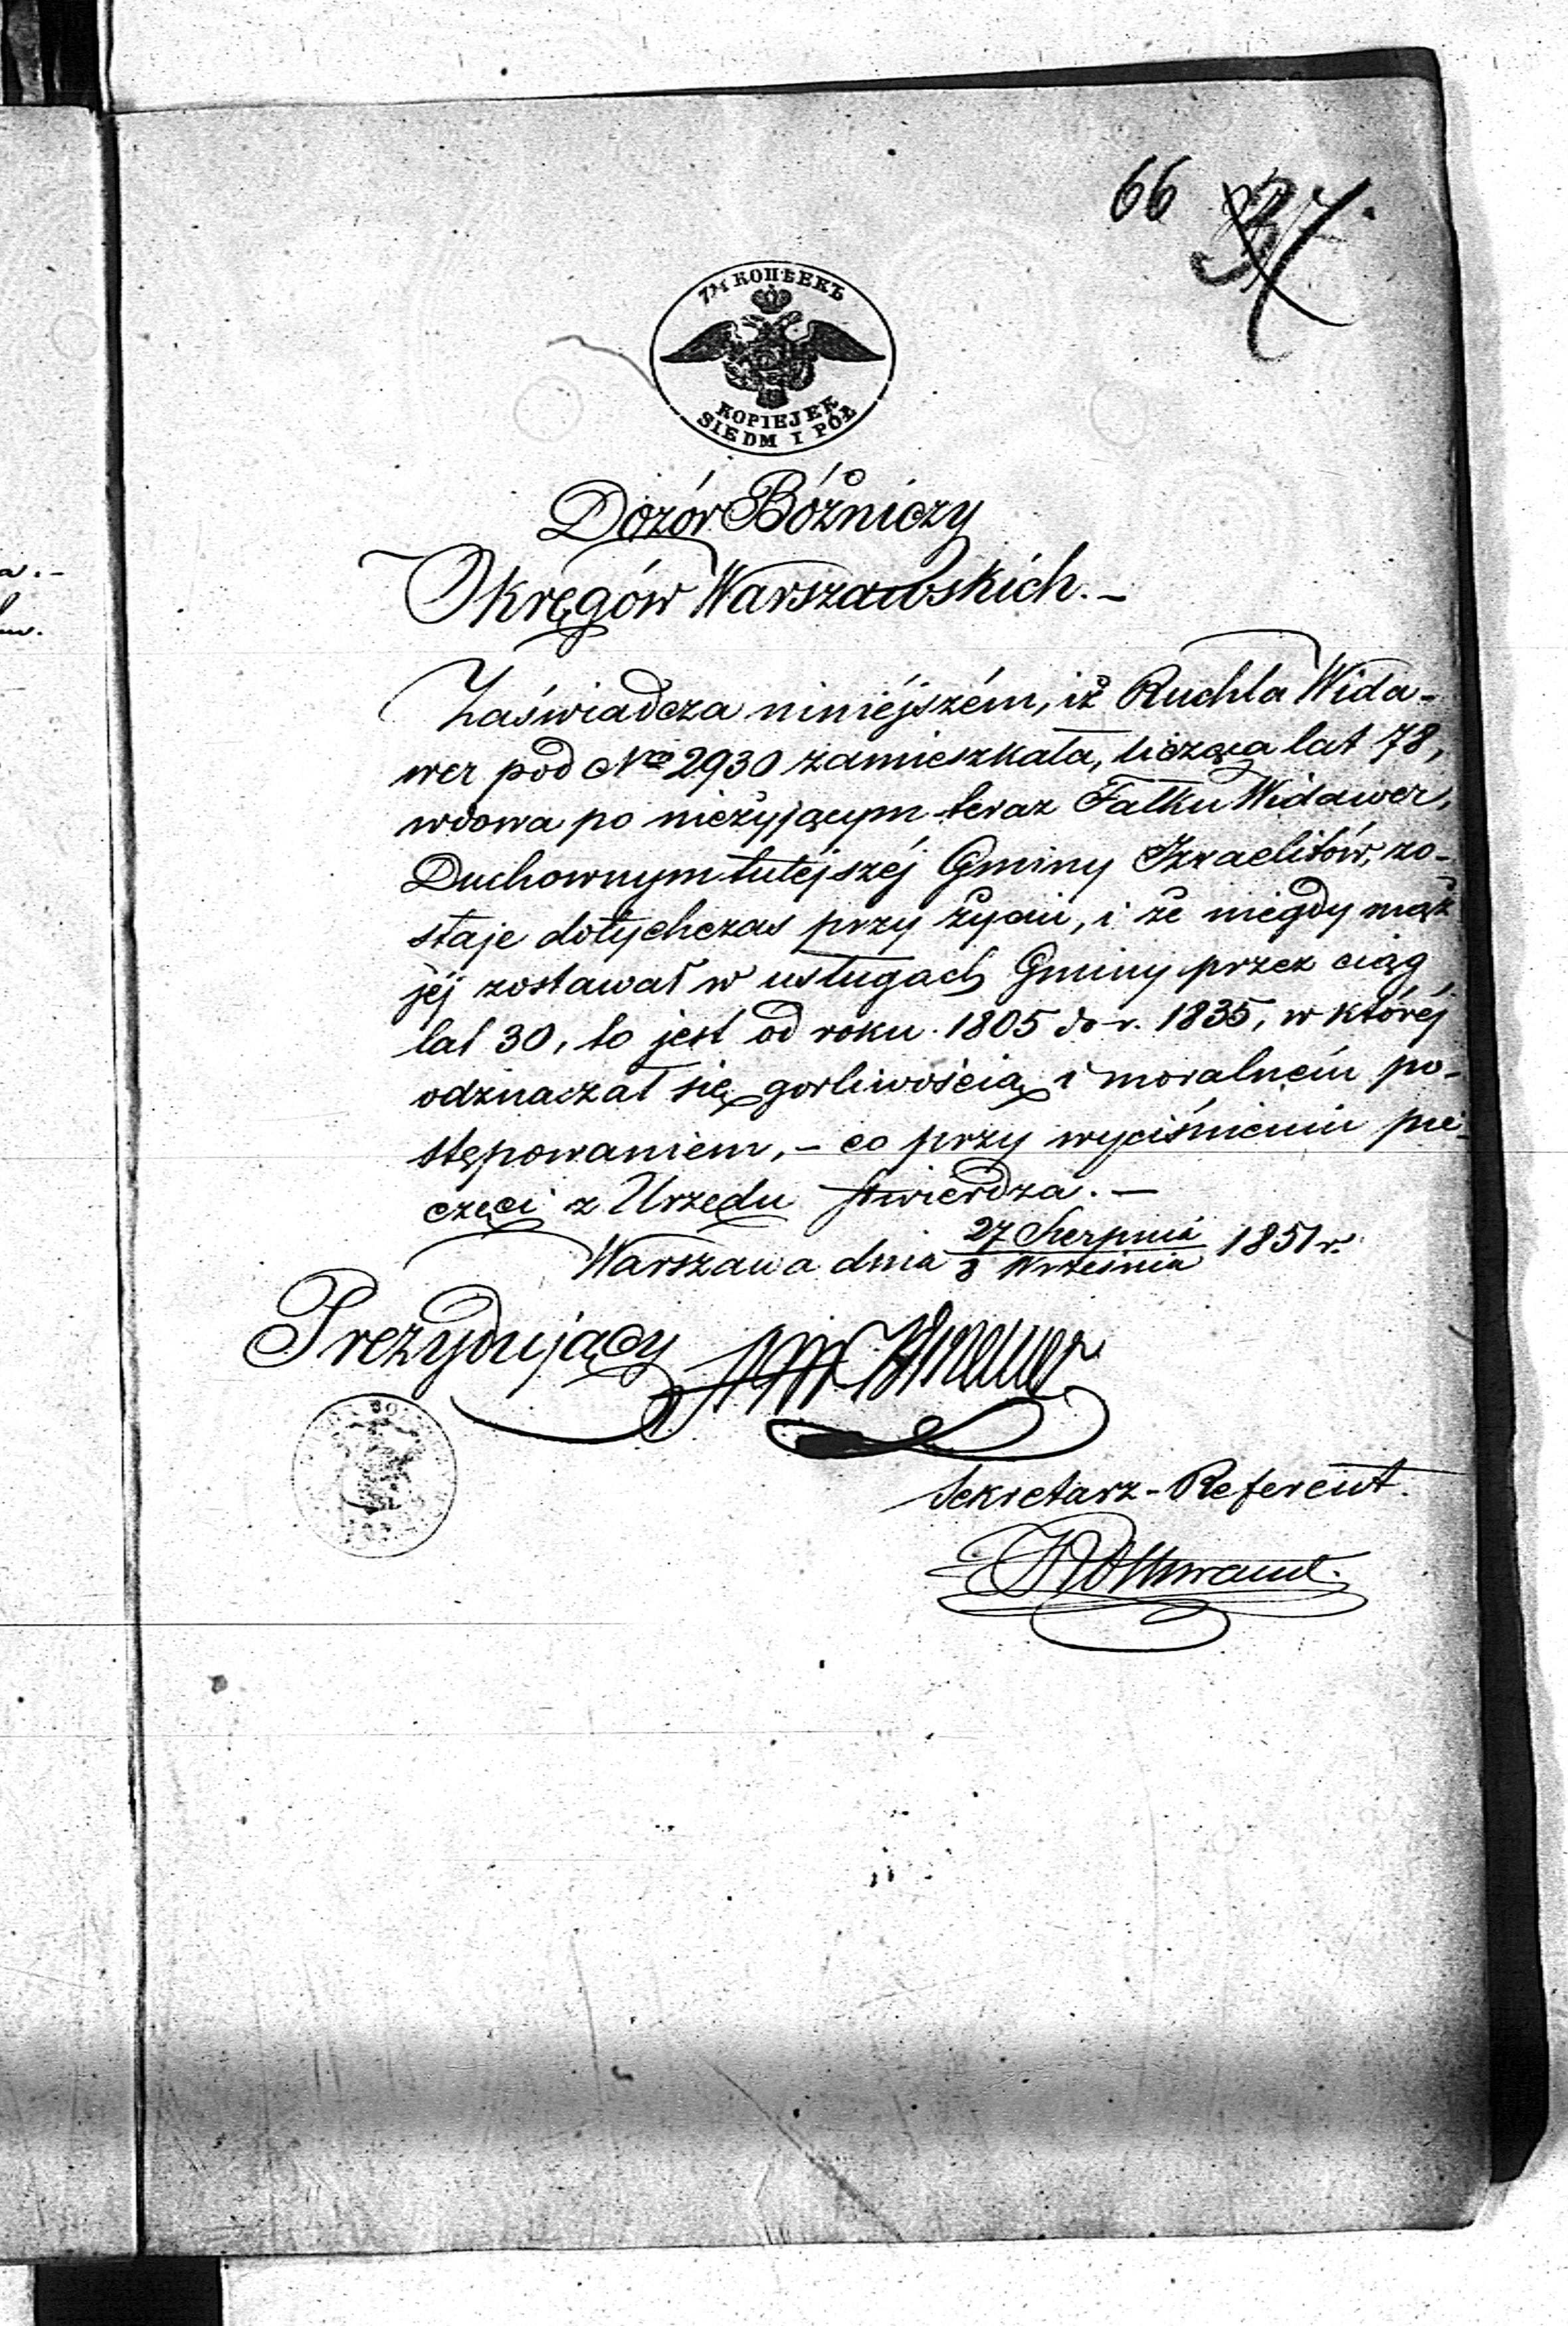 a.-
66 37.
7½ КОПѢЕКЪ
KOPIEJEK
SIEDM I PÓŁ
Dozór Bóżniczy
Okręgów Warszawskich.-
Zaświadcza niniéjszém, iż Ruchla Wida-
wer pod Nrem 2930 zamieszkała, licząca lat 78,
wdowa po nieżyjącym teraz Falku Widawer,
Duchownym tutéjszéj Gminy Izraelitów, zo-
staje dotychczas przy życiu, i że niegdy mąż
jéj zostawał w usługach Gminy przez ciąg
lat 30, to jest od roku 1805 do r. 1835, w któréj
odznaczał się gorliwością i moralném po-
stępowaniem, - co przy wyciśnieniu pie-
częci z Urzędu stwierdza. -
Warszawa dnia 27 Sierpnia 1851 r.
8 Września
Prezydujący
Sekretarz-Referent.